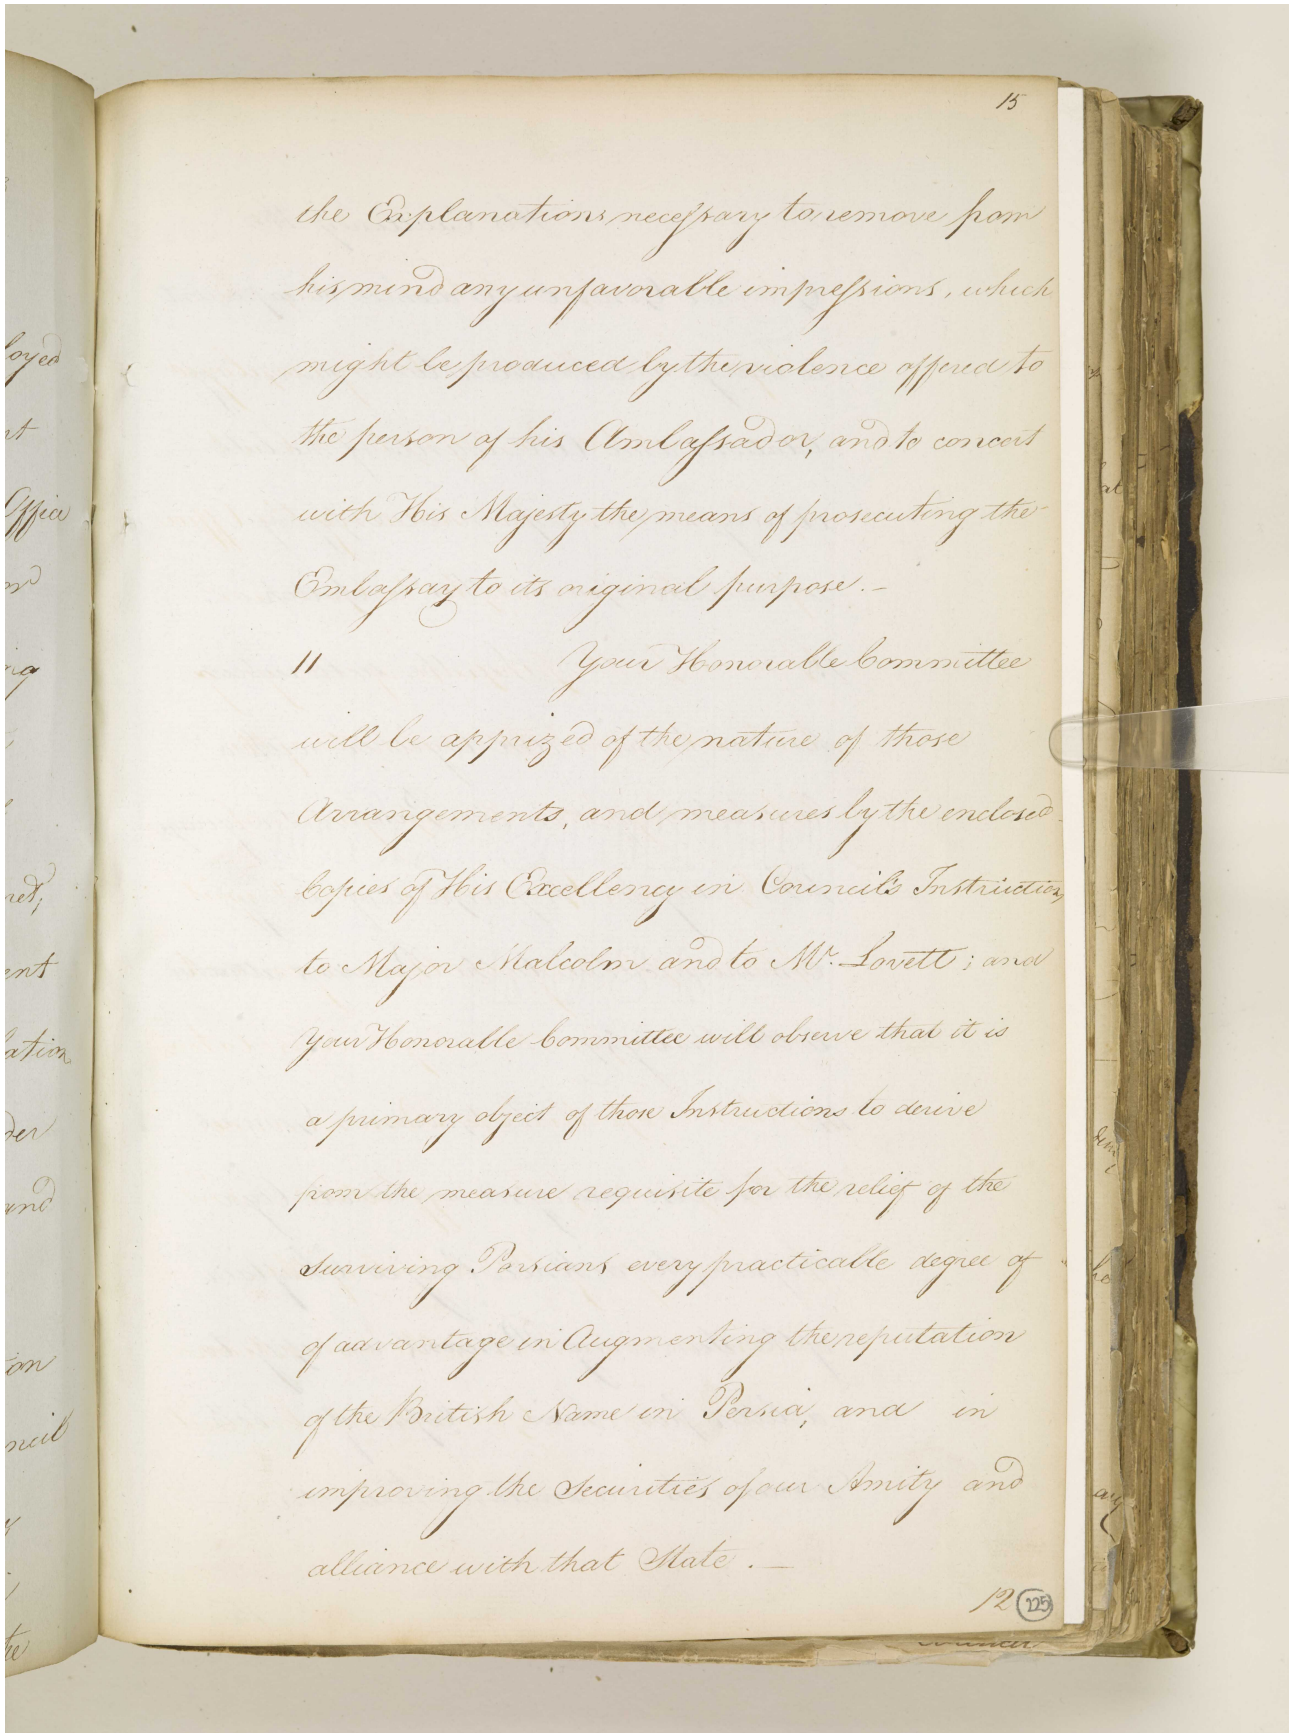 15
the Explanations necessary to remove from
his mind any unfavorable impressions, which
might be produced by the violence offered to
the person of his Ambassador, and to concert
with His Majesty the means of prosecuting the
Embassay to its original purpose. _
11 Your Honorable Committee
will be apprized of the nature of those
Arrangements, and measures by the enclosed
Copies of His Excellency in Council's Instructions
to Major Malcolm and to Mr. Lovett; and
Your Honorable Committee will observe that it is
a primary object of those Instructions to derive
from the measure requisite for the relief of the
surviving Persians every practicable degree of
of advantage in Augmenting the reputation
of the British Name in Persia, and in
improving the Securities of our Amity and
alliance with that State. _
12
225